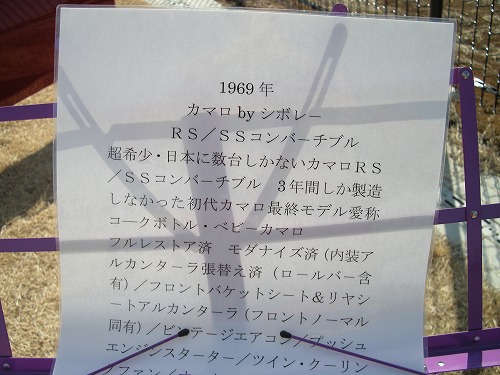 1969年
カマロ by シボレー
RS／SSコンバーチブル
超希少・日本に数台しかないカマロRS
／SSコンバーチブル　3年間しか製造
しなかった初代カマロ最終モデル愛称
コークボトル・ベビーカマロ
フルレストア済　モダナイズ済（内装ア
ルカンターラ張替え済（ロールバー含
有）／フロントバケットシート＆リヤシ
ートアルカンターラ（フロントノーマル
同有）／ビンテージエアコン／プッシュ
エンジンスターター／ツイン・クーリン
グファン／